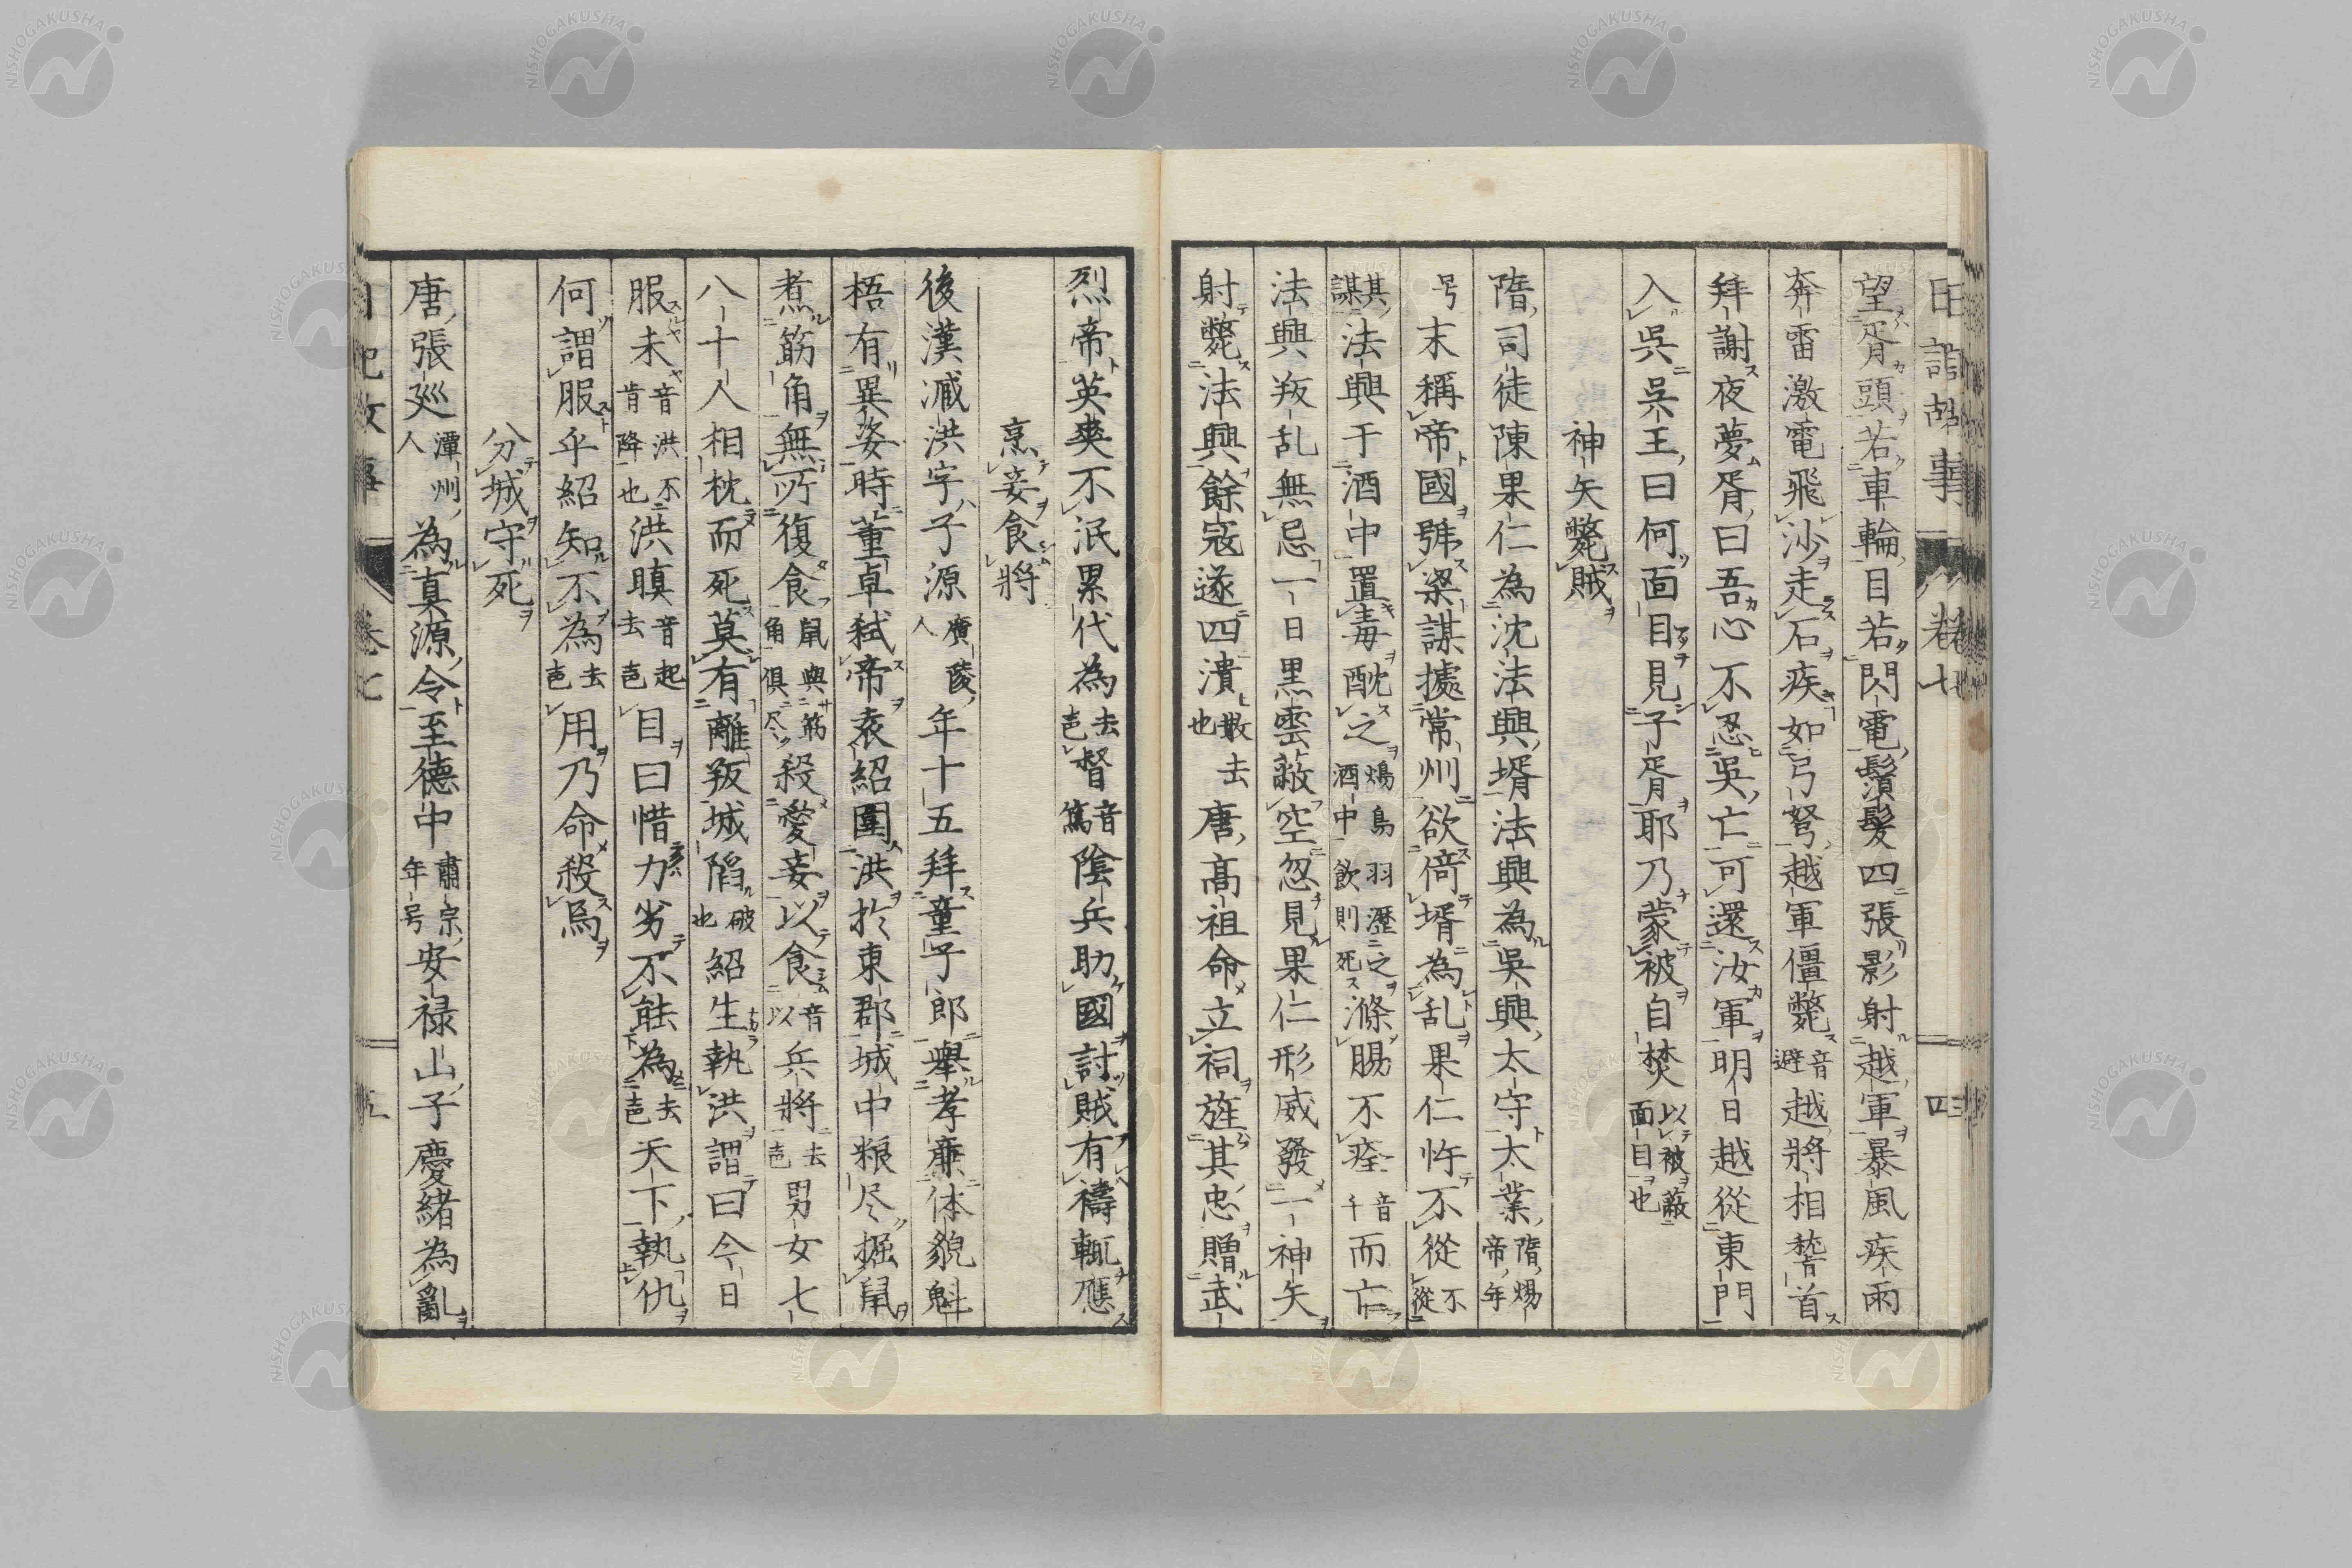 日記故事 卷七 四
望胥頭若車輪目若閃電鬚髮四張影射越軍暴風疾雨
奔雷激電飛沙走石疾如弓弩越軍僵斃音避越將相嵇首
拜謝夜夢胥曰吾心不忍吳亡可還汝軍明日越從東門
入吳吳王曰何面目見子胥耶乃蒙被自焚以被蔽面目也
神矢斃賊
隋司徒陳果仁為沈法興壻法興為吳興太守大業隋煬帝年
号末稱帝國號梁謀據常州欲倚壻為乱果仁忤不從不從
其謀法興于酒中置毒酖之鴆鳥羽瀝酒中飲之則死滌腸不痊音千而亡
法興叛乱無忌一日黒雲蔽空忽見果仁形威發一神矢
射斃法興餘寇遂四潰散去也唐高祖命立祠旌其忠贈武
烈帝英爽不泯累代為去声督音篤陰兵助國討賊有禱輒應
烹妾食將
後漢臧洪字子源廣陵人年十五拜童子郎舉孝廉体貌魁
梧有異姿時董卓弒帝袁紹圍洪於東郡城中粮尽掘鼠
煮筋角無所復食鼠與筋角俱尽殺愛妾以食音以兵將去声男女七
八十人相枕而死莫有離叛城陷破也紹生執洪謂曰今日
服未音洪不肯降也洪瞋音起去声目曰惜力劣不能為去声天下執仇
何謂服乎紹知不為去声用乃命殺焉
分城守死
唐張廵潭州人為真源令至德中肅宗年号安禄山子慶緒為亂
日記故事 卷七 五
NISHOGAKUSHA